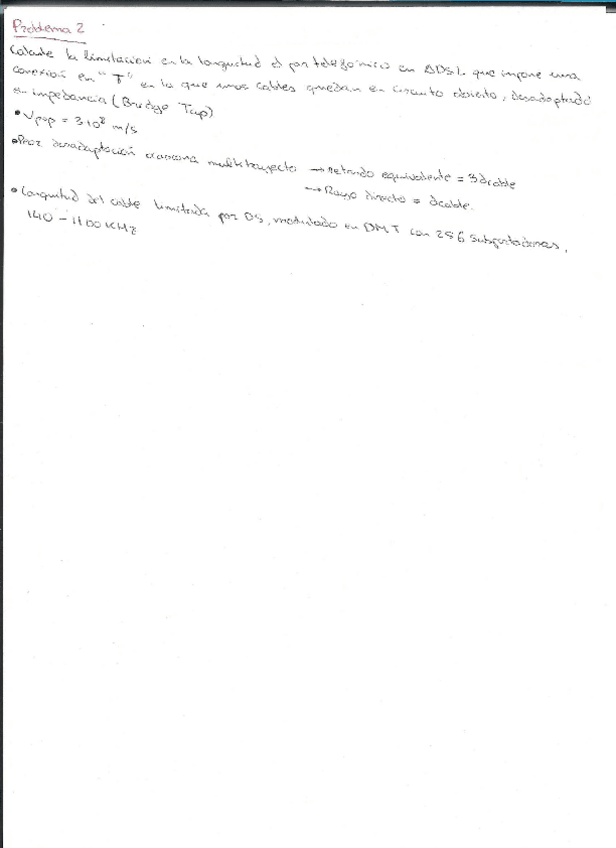 Problema 2
Calcule la limitación en la longitud el par telefónico en ADSL que impone una
conexión en "T" en la que unos cables quedan en circuito abierto, desadaptando
su impedancia (Bridge Tap)
• Vprop = 3·10⁸ m/s
• Proz desadaptación ocasiona multitrayecto → retardo equivalente = 3dcable
→ Rayo directo = dcable.
• Longitud del cable limitada por DS, modulado en DMT con 256 subportadoras,
140 - 1100 KHz